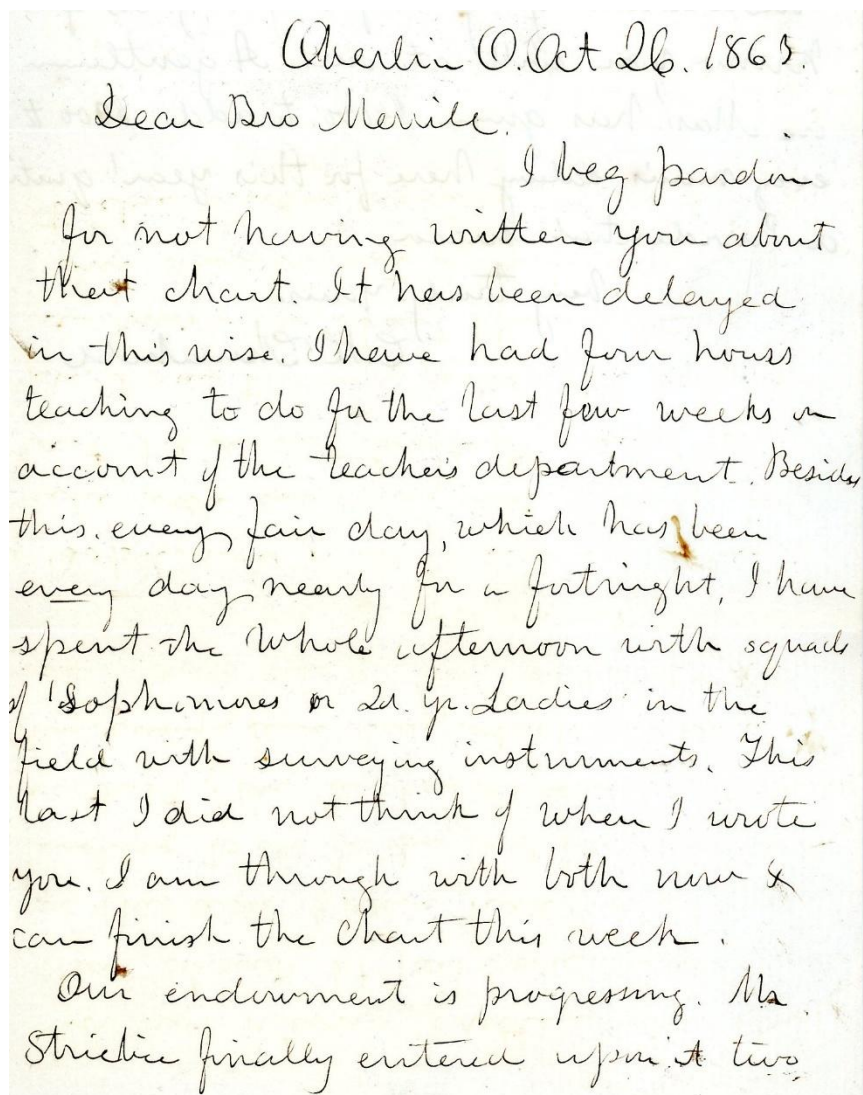 Oberlin O. Oct 26. 1863.
Dear Bro Merrill.
I beg pardon
for not having written you about
that chart. It has been delayed
in this wise. I have had four hours
teaching to do for the last few weeks on
account of the teacher's department. Besides
this, every fair day, which has been
every day nearly for a fortnight, I have
spent the whole afternoon with squads
of Sophomores or 2d. yr. Ladies in the
field with surveying instruments. This
last I did not think of when I wrote
you. I am through with both now &
can finish the chart this week.
Our endowment is progressing. Mr
finally entered upon it two